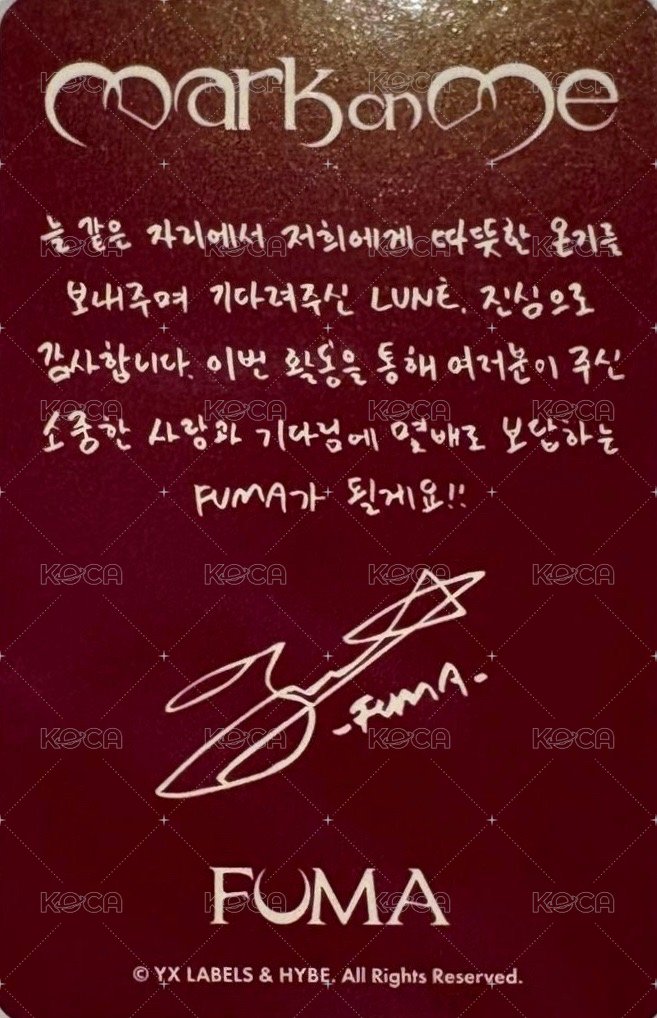 mark on me
늘 같은 자리에서 저희에게 따뜻한 온기를
보내주며 기다려주신 LUNÉ. 진심으로
감사합니다. 이번 활동을 통해 여러분이 주신
소중한 사랑과 기다림에 몇배로 보답하는
FUMA가 될게요!!
-FUMA-
FUMA
© YX LABELS & HYBE. All Rights Reserved.
KOCA